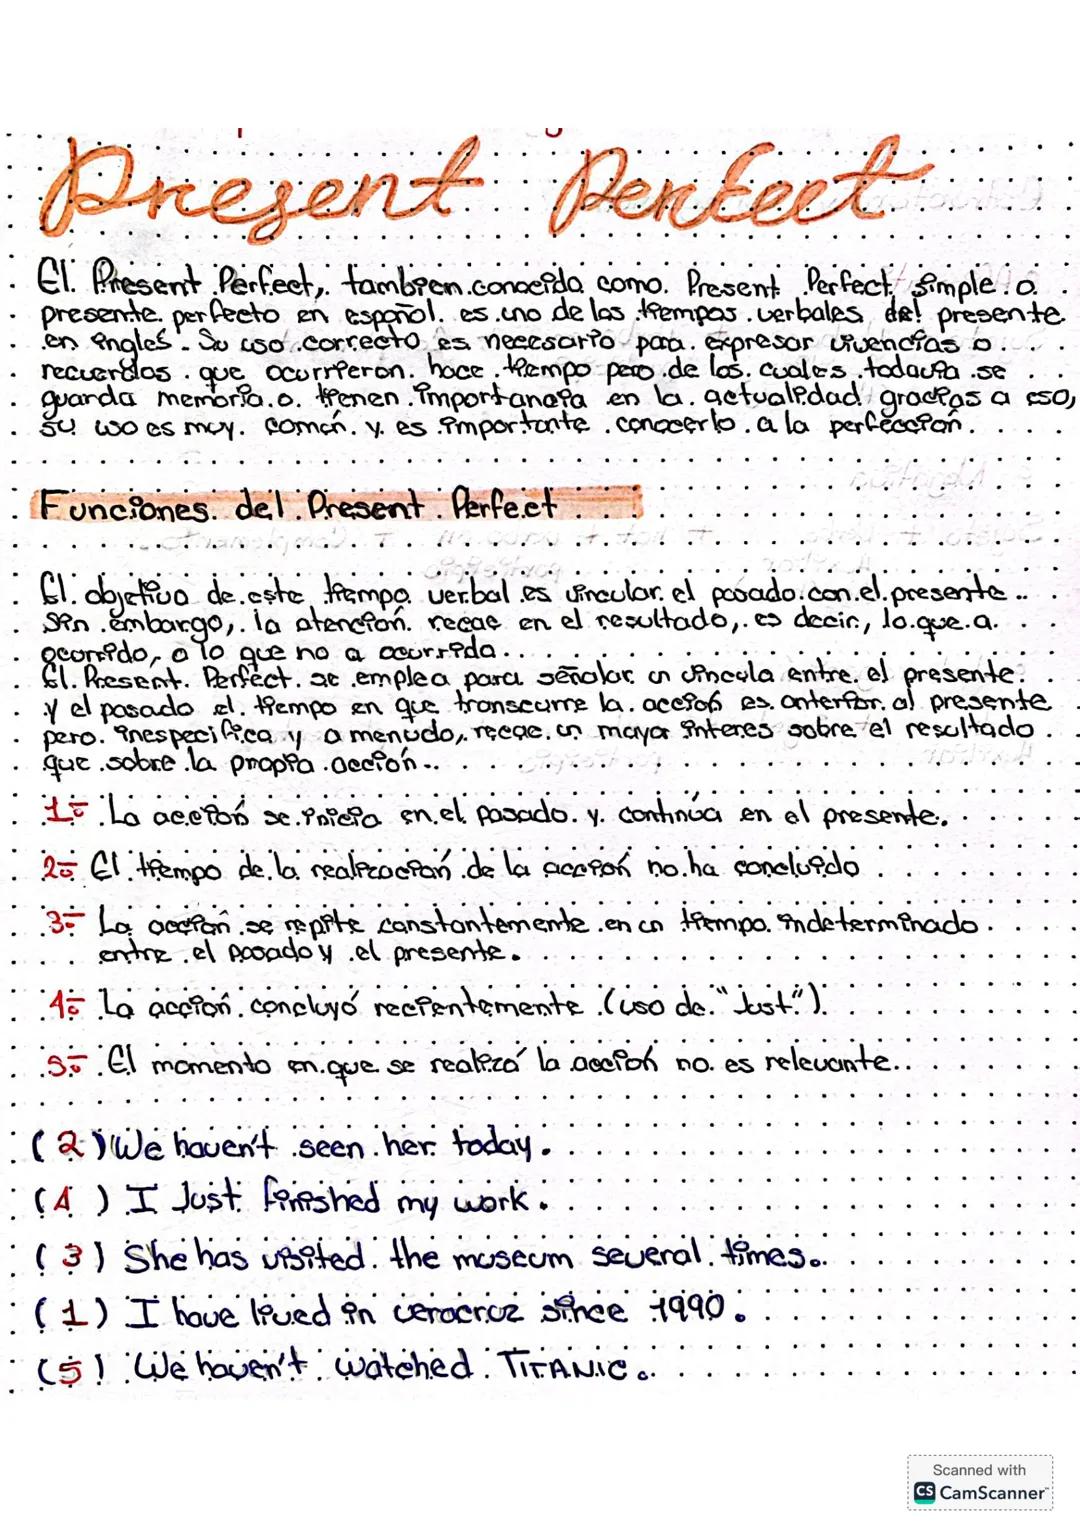 Present Perfect
El Present Perfect, tambien conocida como Present Perfect simple o
presente perfecto en español es uno de los tiempos verbales del presente
en ingles. Su uso correcto es necesario para expresar vivencias o
recuerdos que ocurrieron hace tiempo pero de los cuales todavia se
guarda memoria o tienen importancia en la actualidad gracias a eso,
su uso es muy común y es importante conocerlo a la perfección.
Funciones del Present Perfect
El objetivo de este tiempo verbal es vincular el pasado con el presente..
Sin embargo, la atención recae en el resultado, es decir, lo que a
ocurrido, o lo que no a ocurrido.
El Present Perfect se emplea para señalar un vincula entre el presente
y el pasado el tiempo en que transcurre la acción es anterior al presente
pero inespecifica y a menudo, recae un mayor interes sobre el resultado
que sobre la propia acción..
1.- La acción se inicia en el pasado y continúa en el presente.
2.- El tiempo de la realización de la acción no ha concluido
3.- La acción se repite constantemente en un tiempo indeterminado
entre el pasado y el presente.
4.- La acción concluyó recientemente (uso de "Just").
5.- El momento en que se realizó la acción no es relevante..
(2) We haven't seen her today.
(4) I Just finished my work.
(3) She has visited the museum several times.
(1) I have lived in veracruz since 1990.
(5) We haven't watched TITANIC.
Scanned with
CS CamScanner